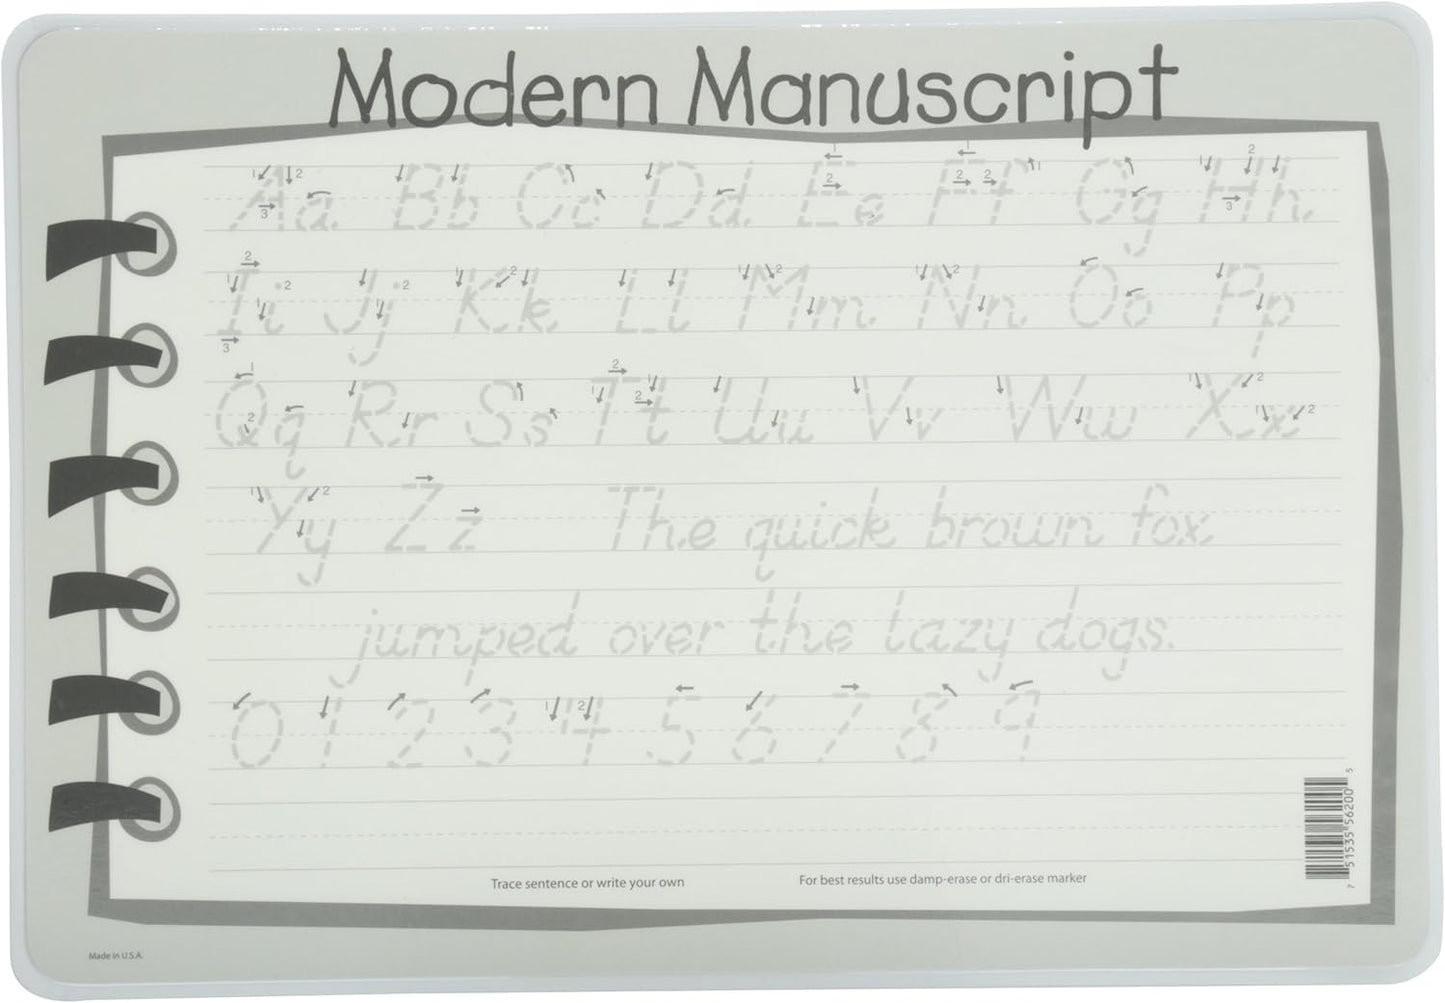 Modern Manuscript
Aa Bb Cc Dd Ee Ff Gg Hh
Ii Jj Kk Ll Mm Nn Oo Pp
Qq Rr Ss Tt Uu Vv Ww Xx
Yy Zz The quick brown fox
jumped over the lazy dogs.
0 1 2 3 4 5 6 7 8 9
Trace sentence or write your own
For best results use damp-erase or dri-erase marker
7 51535 56200 5
Made in U.S.A.